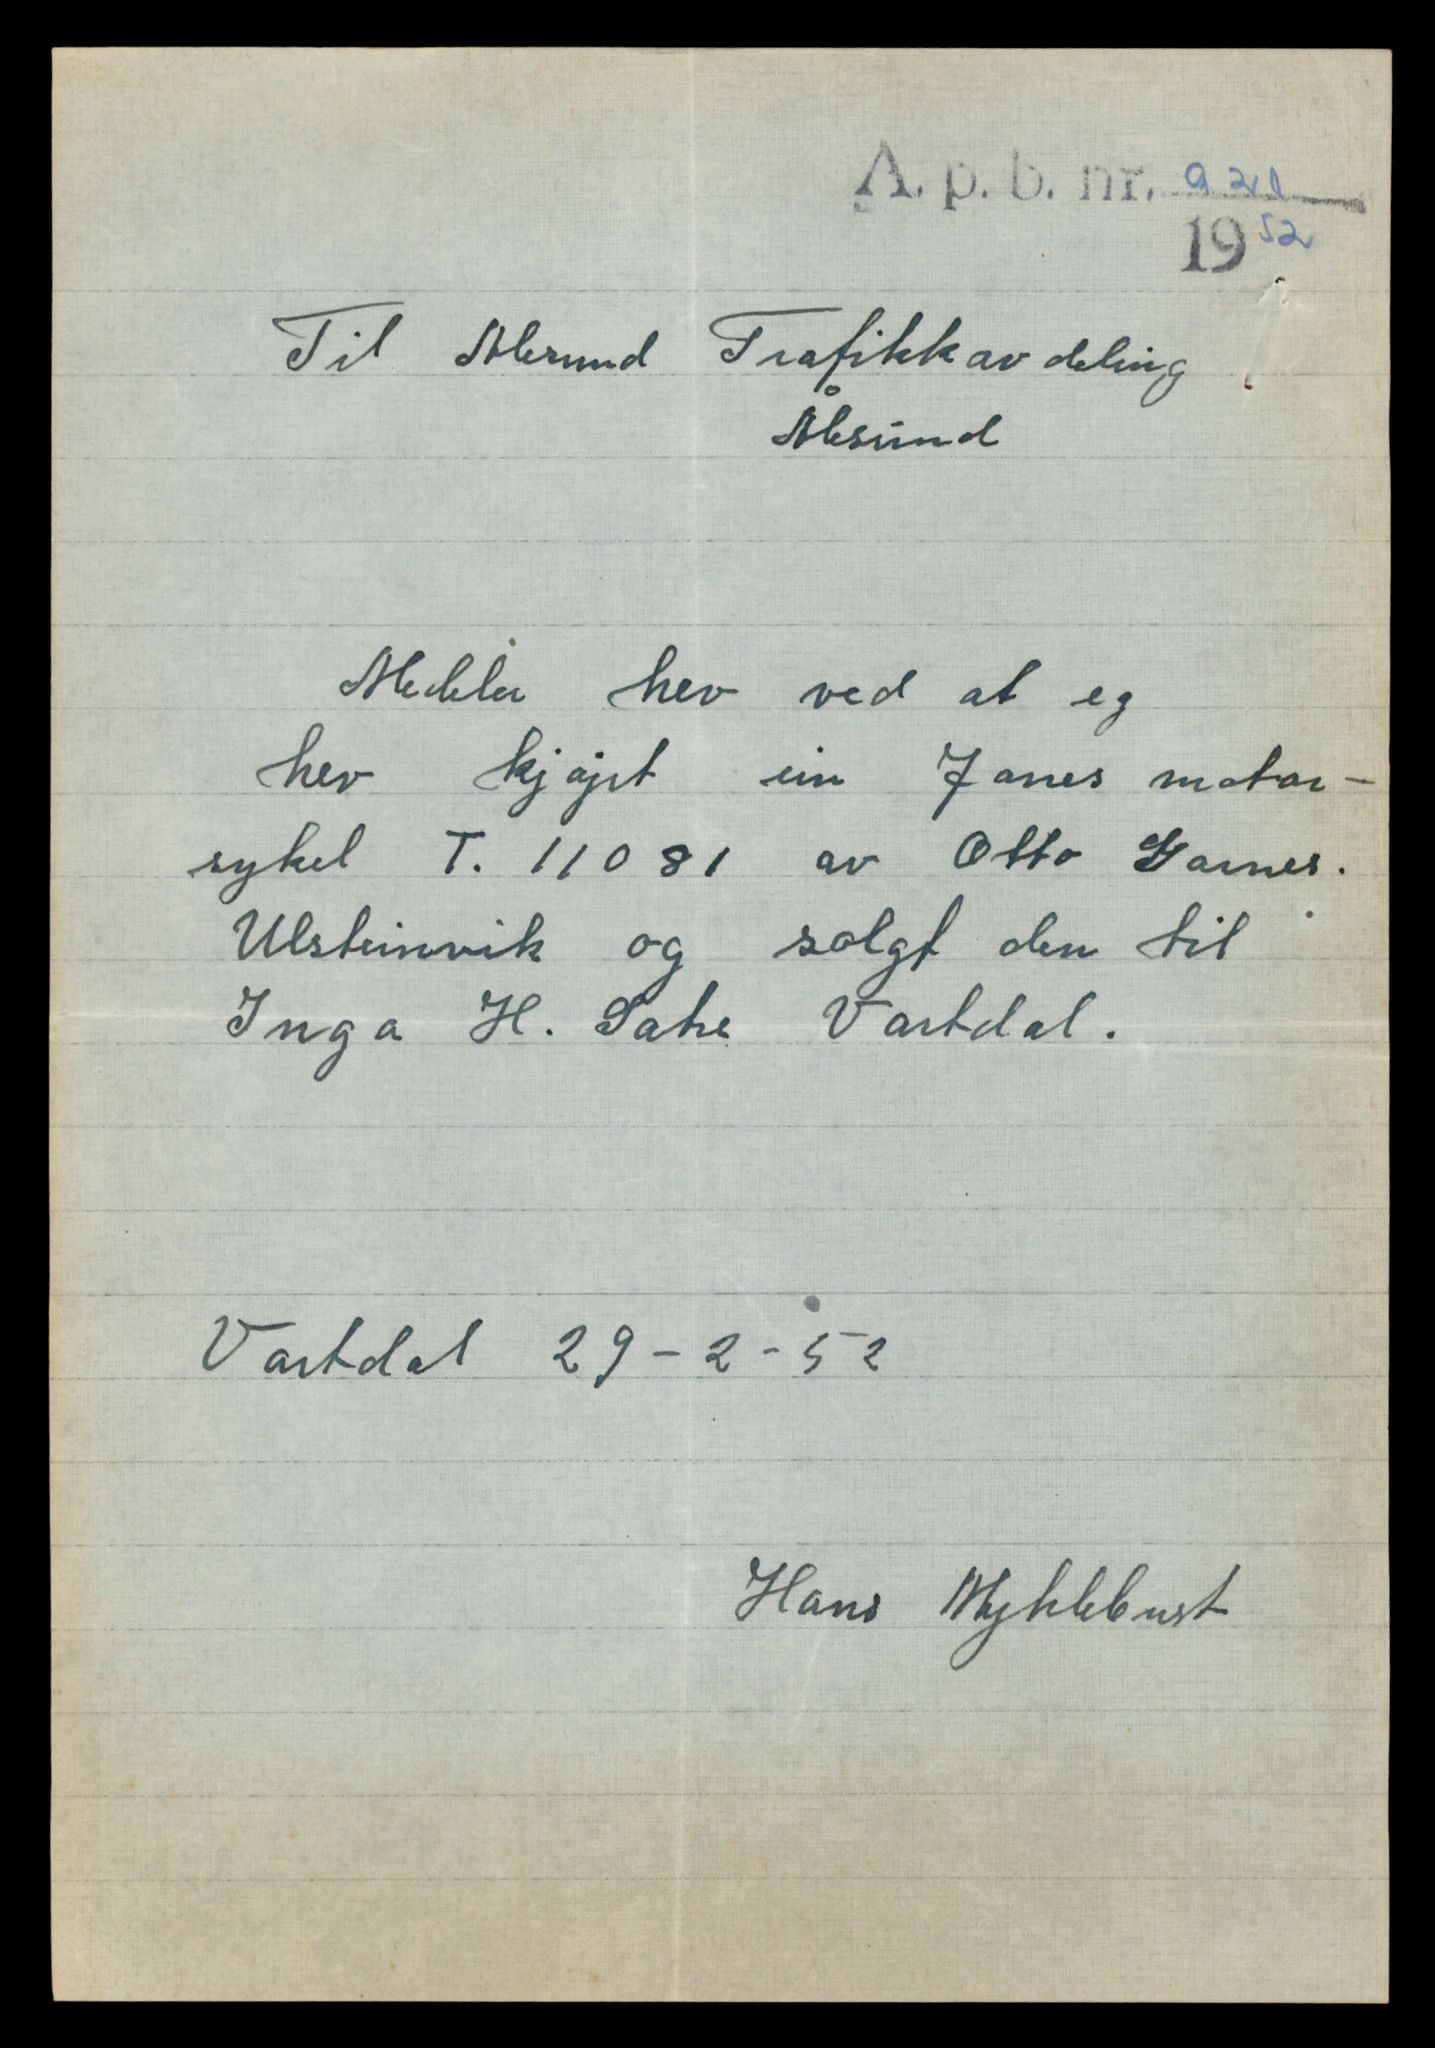 A. p. b. nr. 921
1952
Til Alesund Trafikkavdeling
Ålesund
Medeler hev ved at eg
hev kjøjst ein James motor-
sykel T. 11081 av Otto Garnes.
Ulsteinvik og solgt den til
Inga H. Sake Vartdal.
Vartdal 29-2-52
Hans Myklebust